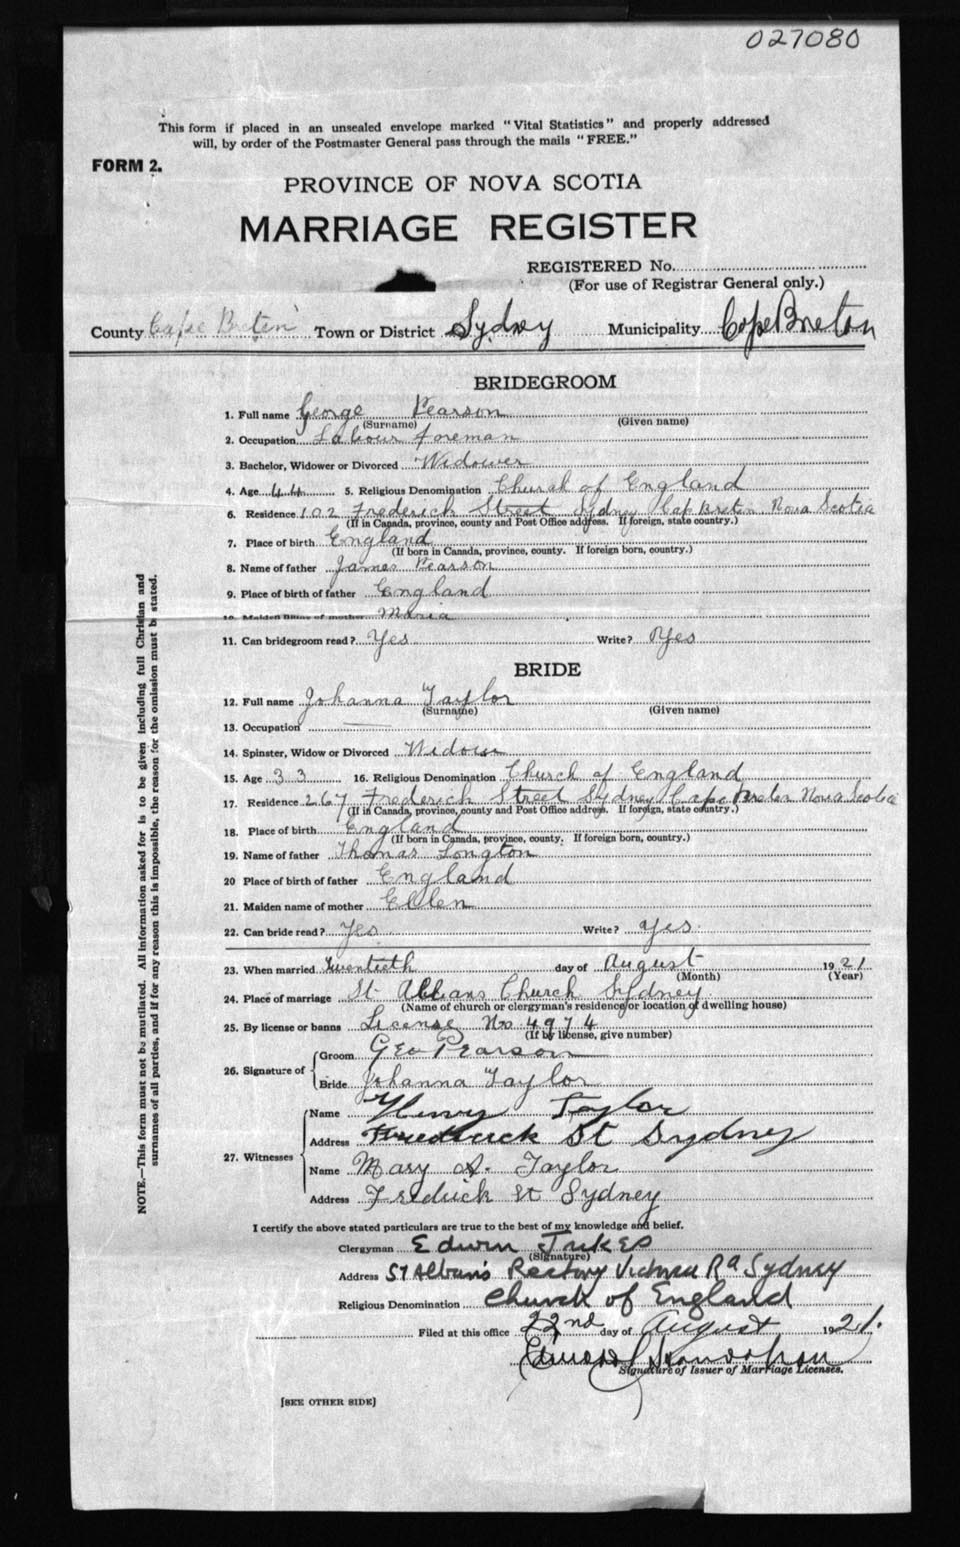 027080
This form if placed in an unsealed envelope marked "Vital Statistics" and properly addressed
will, by order of the Postmaster General pass through the mails "FREE."
FORM 2.
PROVINCE OF NOVA SCOTIA
MARRIAGE REGISTER
REGISTERED No.
(For use of Registrar General only.)
County Cape Breton Town or District Sydney Municipality Cape Breton
BRIDEGROOM
1. Full name George Pearson
(Surname) (Given name)
2. Occupation Labour Foreman
3. Bachelor, Widower or Divorced Widower
4. Age 44 5. Religious Denomination Church of England
6. Residence 102 Frederick Street Sydney Cap Breton Nova Scotia
(If in Canada, province, county and Post Office address. If foreign, state country.)
7. Place of birth England
(If born in Canada, province, county. If foreign born, country.)
8. Name of father James Pearson
9. Place of birth of father England
10. Maiden name of mother Maria
11. Can bridegroom read? Yes Write? Yes
BRIDE
12. Full name Johanna Taylor
(Surname) (Given name)
13. Occupation
14. Spinster, Widow or Divorced Widow
15. Age 33 16. Religious Denomination Church of England
17. Residence 267 Frederick Street Sydney Cape Breton Nova Scotia
(If in Canada, province, county and Post Office address. If foreign, state country.)
18. Place of birth England
(If born in Canada, province, county. If foreign born, country.)
19. Name of father Thomas Longton
20 Place of birth of father England
21. Maiden name of mother Ellen
22. Can bride read? Yes Write? Yes.
23. When married Twentieth day of August 1921
(Month) (Year)
24. Place of marriage St Albans Church Sydney
(Name of church or clergyman's residence or location of dwelling house)
25. By license or banns License No 4974
(If by license, give number)
26. Signature of
Groom Geo Pearson
Bride Johanna Taylor
27. Witnesses
Name Henry Taylor
Address Frederick St Sydney
Name Mary A. Taylor
Address Fredrick St Sydney
I certify the above stated particulars are true to the best of my knowledge and belief.
Clergyman Edwin Jukes
(Signature)
Address St Alban's Rectory Victoria Rd Sydney
Religious Denomination Church of England
Filed at this office 22nd day of August 1921.
Signature of Issuer of Marriage Licenses.
[SEE OTHER SIDE]
NOTE.—This form must not be mutilated. All information asked for is to be given including full Christian and
surnames of all parties, and if for any reason this is impossible, the reason for the omission must be stated.